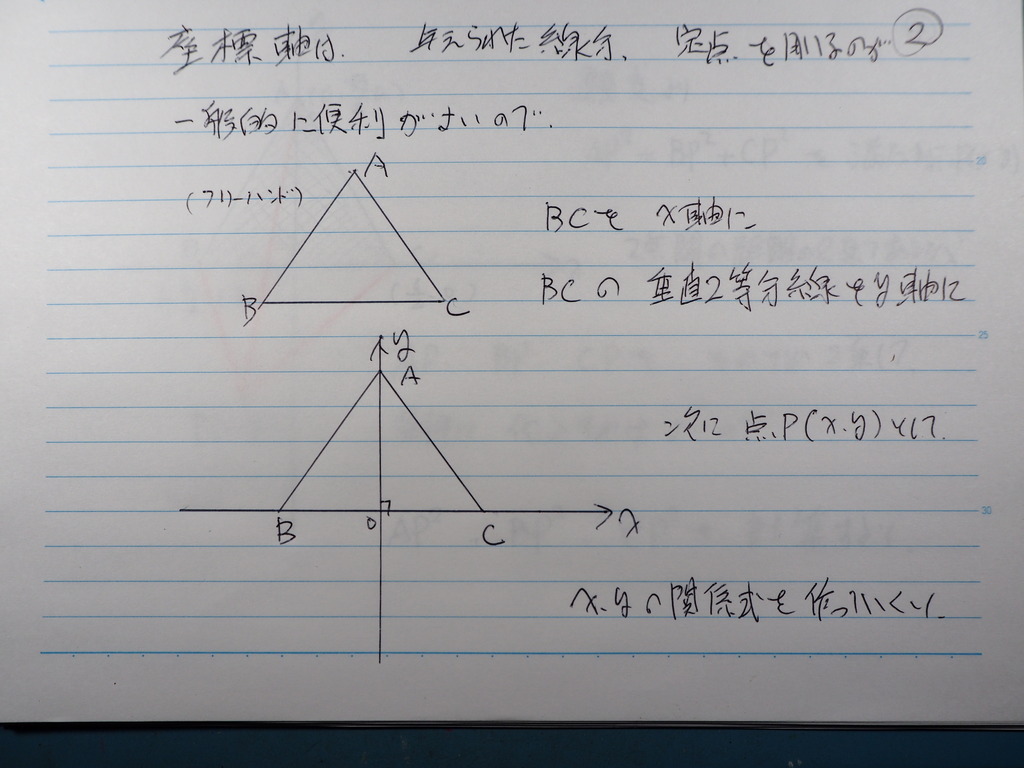 座標軸は. 与えられた線分、定点を用いるのが ②
一般的に便利がよいので.
(フリーハンド)
A
B
C
BCを x軸に
BCの 垂直2等分線をy軸に
y
A
B
O
C
x
次に 点P(x.y)として.
x.yの関係式を作っていくと.
25
30